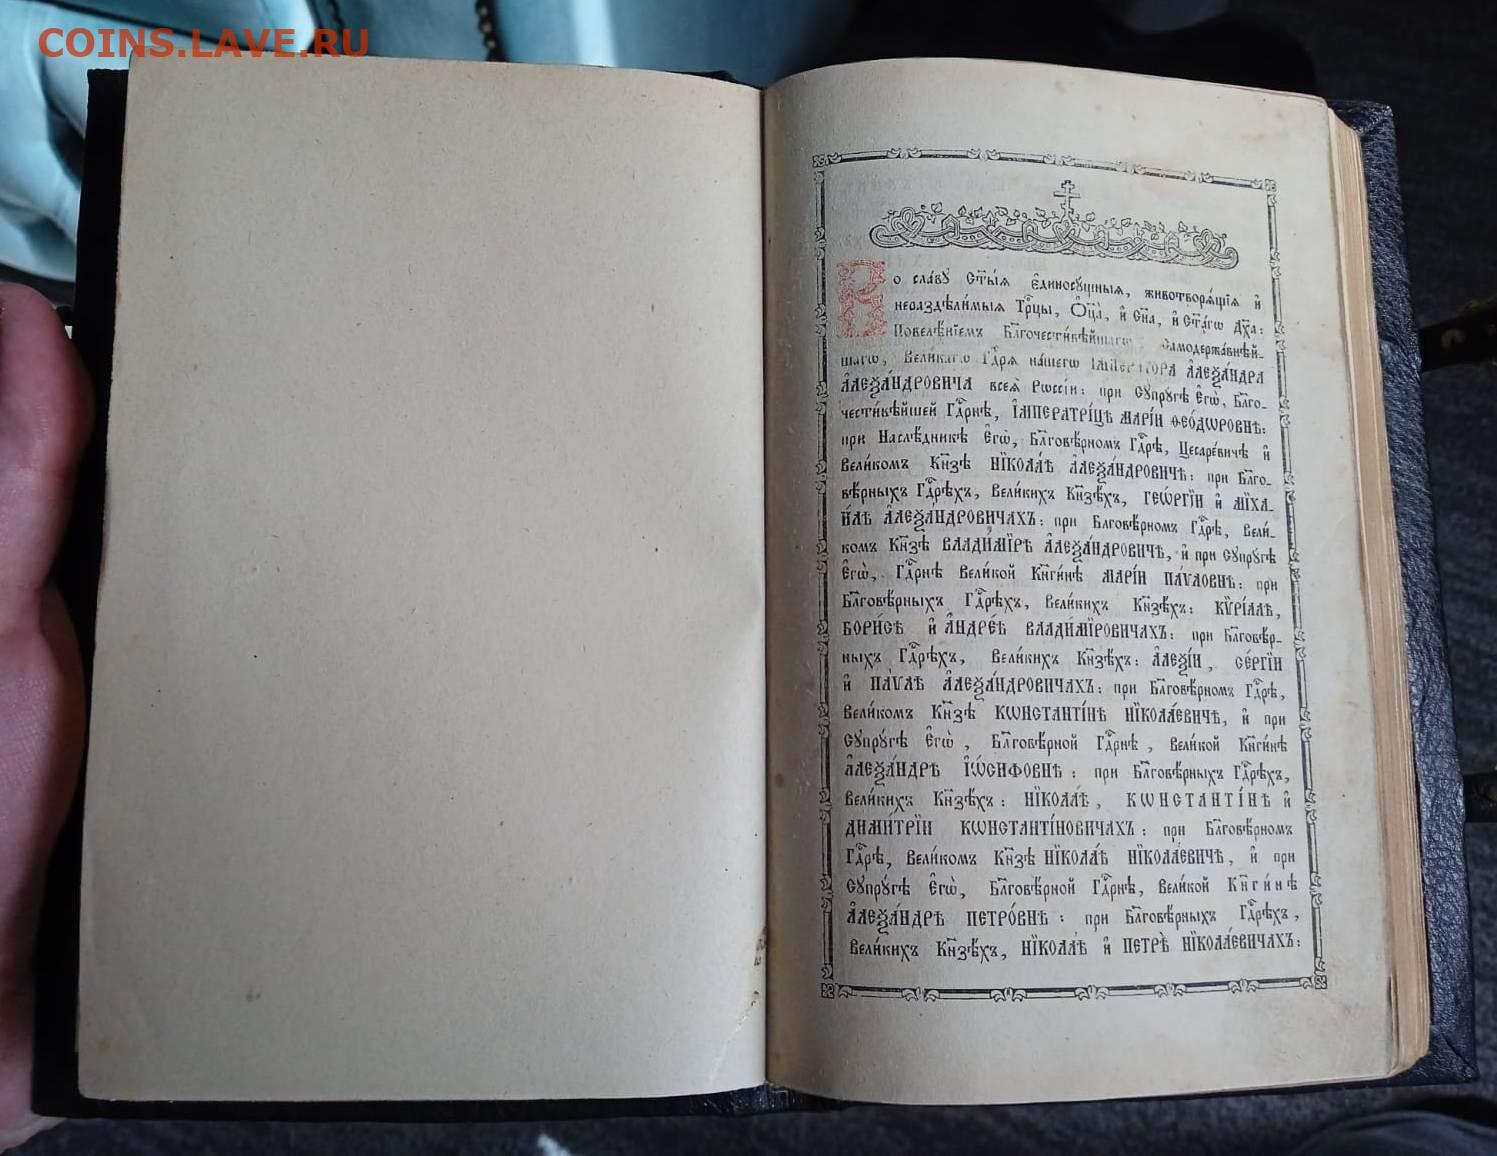 COINS.LAVE.RU
Во сла́вꙋ Ст҃ы́ѧ є҆диносꙋ́щныѧ, животворѧ́щїѧ и҆
нераздѣли́мыѧ Трⷪ҇цы, Ѻ҆ц҃а̀, и҆ Сн҃а, и҆ Ст҃а́гѡ Дх҃а:
Повелѣ́нїемъ Бл҃гочести́вѣйшагѡ Самодержа́внѣй-
шагѡ, Вели́кагѡ Гдⷭ҇рѧ на́шегѡ І҆МПЕРА́ТОРА А҆ЛЕѮА́НДРА
А҆ЛЕѮА́НДРОВИЧА всеѧ̀ Рѡссі́и: при Сꙋпрꙋ́гѣ Є҆гѡ̀, Бл҃го-
чести́вѣйшей Гдⷭ҇рнѣ, І҆МПЕРАТРІ́ЦѢ МАРІ́И ѲЕО́ДѠРОВНѢ:
при Наслѣ́дникѣ Є҆гѡ̀, Бл҃говѣ́рномъ Гдⷭ҇рѣ, Цесаре́вичѣ и҆
Вели́комъ Кн҃зѣ НЇКОЛА́Ѣ А҆ЛЕѮА́НДРОВИЧѢ: при Бл҃го-
вѣ́рныхъ Гдⷭ҇рѣхъ, Вели́кихъ Кн҃зѣхъ, ГЕѠ́РГЇИ и҆ МЇХА-
И́ЛѢ А҆ЛЕѮА́НДРОВИЧАХЪ: при Бл҃говѣ́рномъ Гдⷭ҇рѣ, Вели́-
комъ Кн҃зѣ ВЛАДИ́МЇРѢ А҆ЛЕѮА́НДРОВИЧѢ, и҆ при Сꙋпрꙋ́гѣ
Є҆гѡ̀, Гдⷭ҇рнѣ Вели́кой Кнѧги́нѣ МАРІ́И ПА́ѴЛОВНѢ: при
Бл҃говѣ́рныхъ Гдⷭ҇рѣхъ, Вели́кихъ Кн҃зѣхъ: КѴРІ́ЛЛѢ,
БОРИ́СѢ и҆ А҆НДРЕ́Ѣ ВЛАДИ́МЇРОВИЧАХЪ: при Бл҃говѣ́р-
ныхъ Гдⷭ҇рѣхъ, Вели́кихъ Кн҃зѣхъ: А҆ЛЕѮІ́И, СЕ́РГЇИ
и҆ ПА́ѴЛѢ А҆ЛЕѮА́НДРОВИЧАХЪ: при Бл҃говѣ́рномъ Гдⷭ҇рѣ,
Вели́комъ Кн҃зѣ КѠНСТАНТІ́НѢ НЇКОЛА́ЕВИЧѢ, и҆ при
Сꙋпрꙋ́гѣ Є҆гѡ̀, Бл҃говѣ́рной Гдⷭ҇рнѣ, Вели́кой Кнѧги́нѣ
А҆ЛЕѮА́НДРѢ І҆Ѡ́СИФОВНѢ: при Бл҃говѣ́рныхъ Гдⷭ҇рѣхъ,
Вели́кихъ Кн҃зѣхъ: НЇКОЛА́Ѣ, КѠНСТАНТІ́НѢ и҆
ДИМИ́ТРЇИ КѠНСТАНТІ́НОВИЧАХЪ: при Бл҃говѣ́рномъ
Гдⷭ҇рѣ, Вели́комъ Кн҃зѣ НЇКОЛА́Ѣ НЇКОЛА́ЕВИЧѢ, и҆ при
Сꙋпрꙋ́гѣ Є҆гѡ̀, Бл҃говѣ́рной Гдⷭ҇рнѣ, Вели́кой Кнѧги́нѣ
А҆ЛЕѮА́НДРѢ ПЕТРО́ВНѢ: при Бл҃говѣ́рныхъ Гдⷭ҇рѣхъ,
Вели́кихъ Кн҃зѣхъ, НЇКОЛА́Ѣ и҆ ПЕТРѢ̀ НЇКОЛА́ЕВИЧАХЪ: